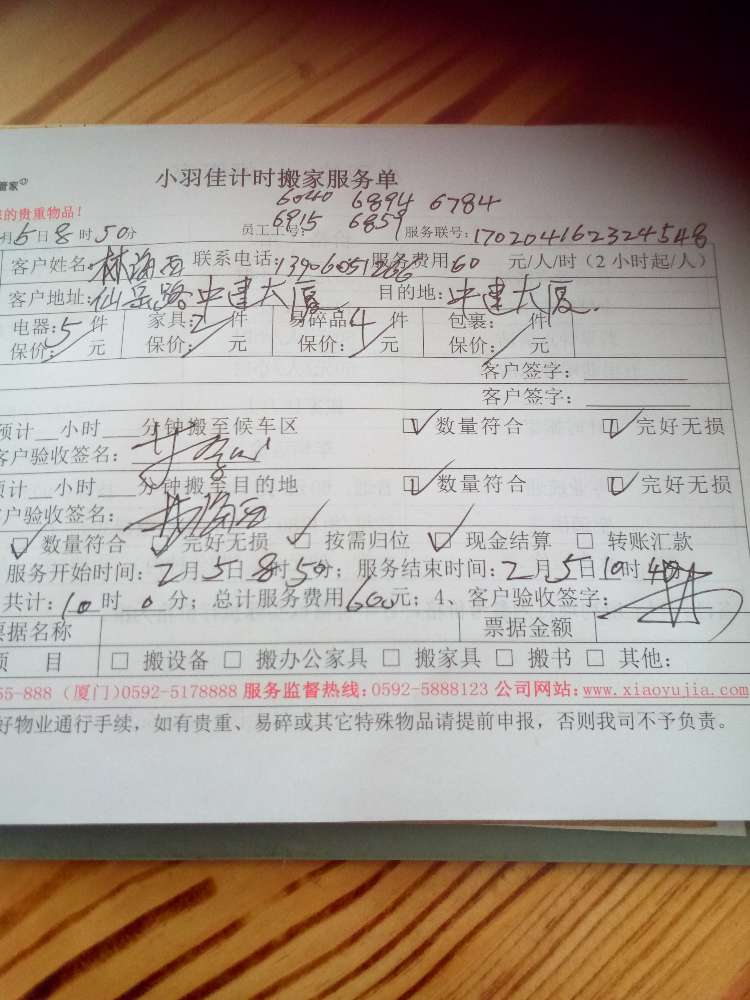 管家
小羽佳计时搬家服务单
6040 6894 6784
的贵重物品!
6915 6859
月5日8时50分 员工工号: 服务联号:170204162324548
客户姓名:林海西 联系电话: 服务费用60元/人/时(2小时起/人)
客户地址:仙岳路中建大厦 目的地:中建大厦
电器:5件 家具:2件 易碎品:4件 包裹: 件
保价: 元 保价: 元 保价: 元 保价: 元
客户签字:
客户签字:
预计__小时___分钟搬至候车区 ☑数量符合 ☑完好无损
客户验收签名:
预计__小时___分钟搬至目的地 ☑数量符合 ☑完好无损
客户验收签名:
☑数量符合 ☑完好无损 ☑按需归位 ☑现金结算 □转账汇款
服务开始时间:2月5日8时50分;服务结束时间:2月5日10时40分
共计:10时0分;总计服务费用600元;4、客户验收签字:
票据名称 票据金额
项 目 □搬设备 □搬办公家具 □搬家具 □搬书 □其他:
55-888(厦门)0592-5178888 服务监督热线:0592-5888123 公司网站:www.xiaoyujia.com
好物业通行手续,如有贵重、易碎或其它特殊物品请提前申报,否则我司不予负责。